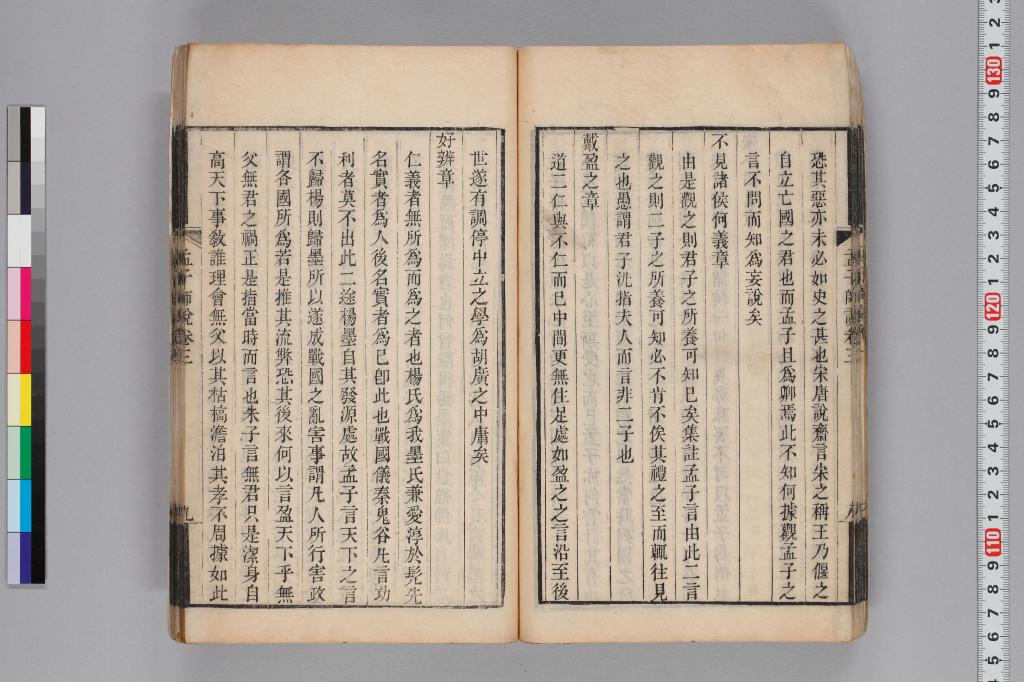 恐其惡亦未必如史之甚也宋唐說齋言宋之稱王乃偃之
自立亡國之君也而孟子且爲卿焉此不知何據觀孟子之
言不問而知爲妄說矣
不見諸侯何義章
由是觀之則君子之所養可知已矣集註孟子言由此二言
觀之則二子之所養可知必不肯不俟其禮之至而輒往見
之也愚謂君子汎指夫人而言非二子也
戴盈之章
道二仁與不仁而已中間更無住足處如盈之之言沿至後
世遂有調停中立之學爲胡廣之中庸矣
好辨章
仁義者無所爲而爲之者也楊氏爲我墨氏兼愛淳於髡先
名實者爲人後名實者爲已卽此也戰國儀秦鬼谷凡言功
利者莫不出此二途楊墨自其發源處故孟子言天下之言
不歸楊則歸墨所以遂成戰國之亂害事謂凡人所行害政
謂各國所爲若是推其流弊恐其後來何以言盈天下乎無
父無君之禍正是指當時而言也朱子言無君只是潔身自
高天下事敎誰理會無父以其枯槁澹泊其孝不周據如此
孟子師說卷三
九